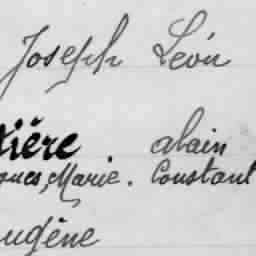 Joseph Léon
ière alain
ques, Marie. Constant
ugène